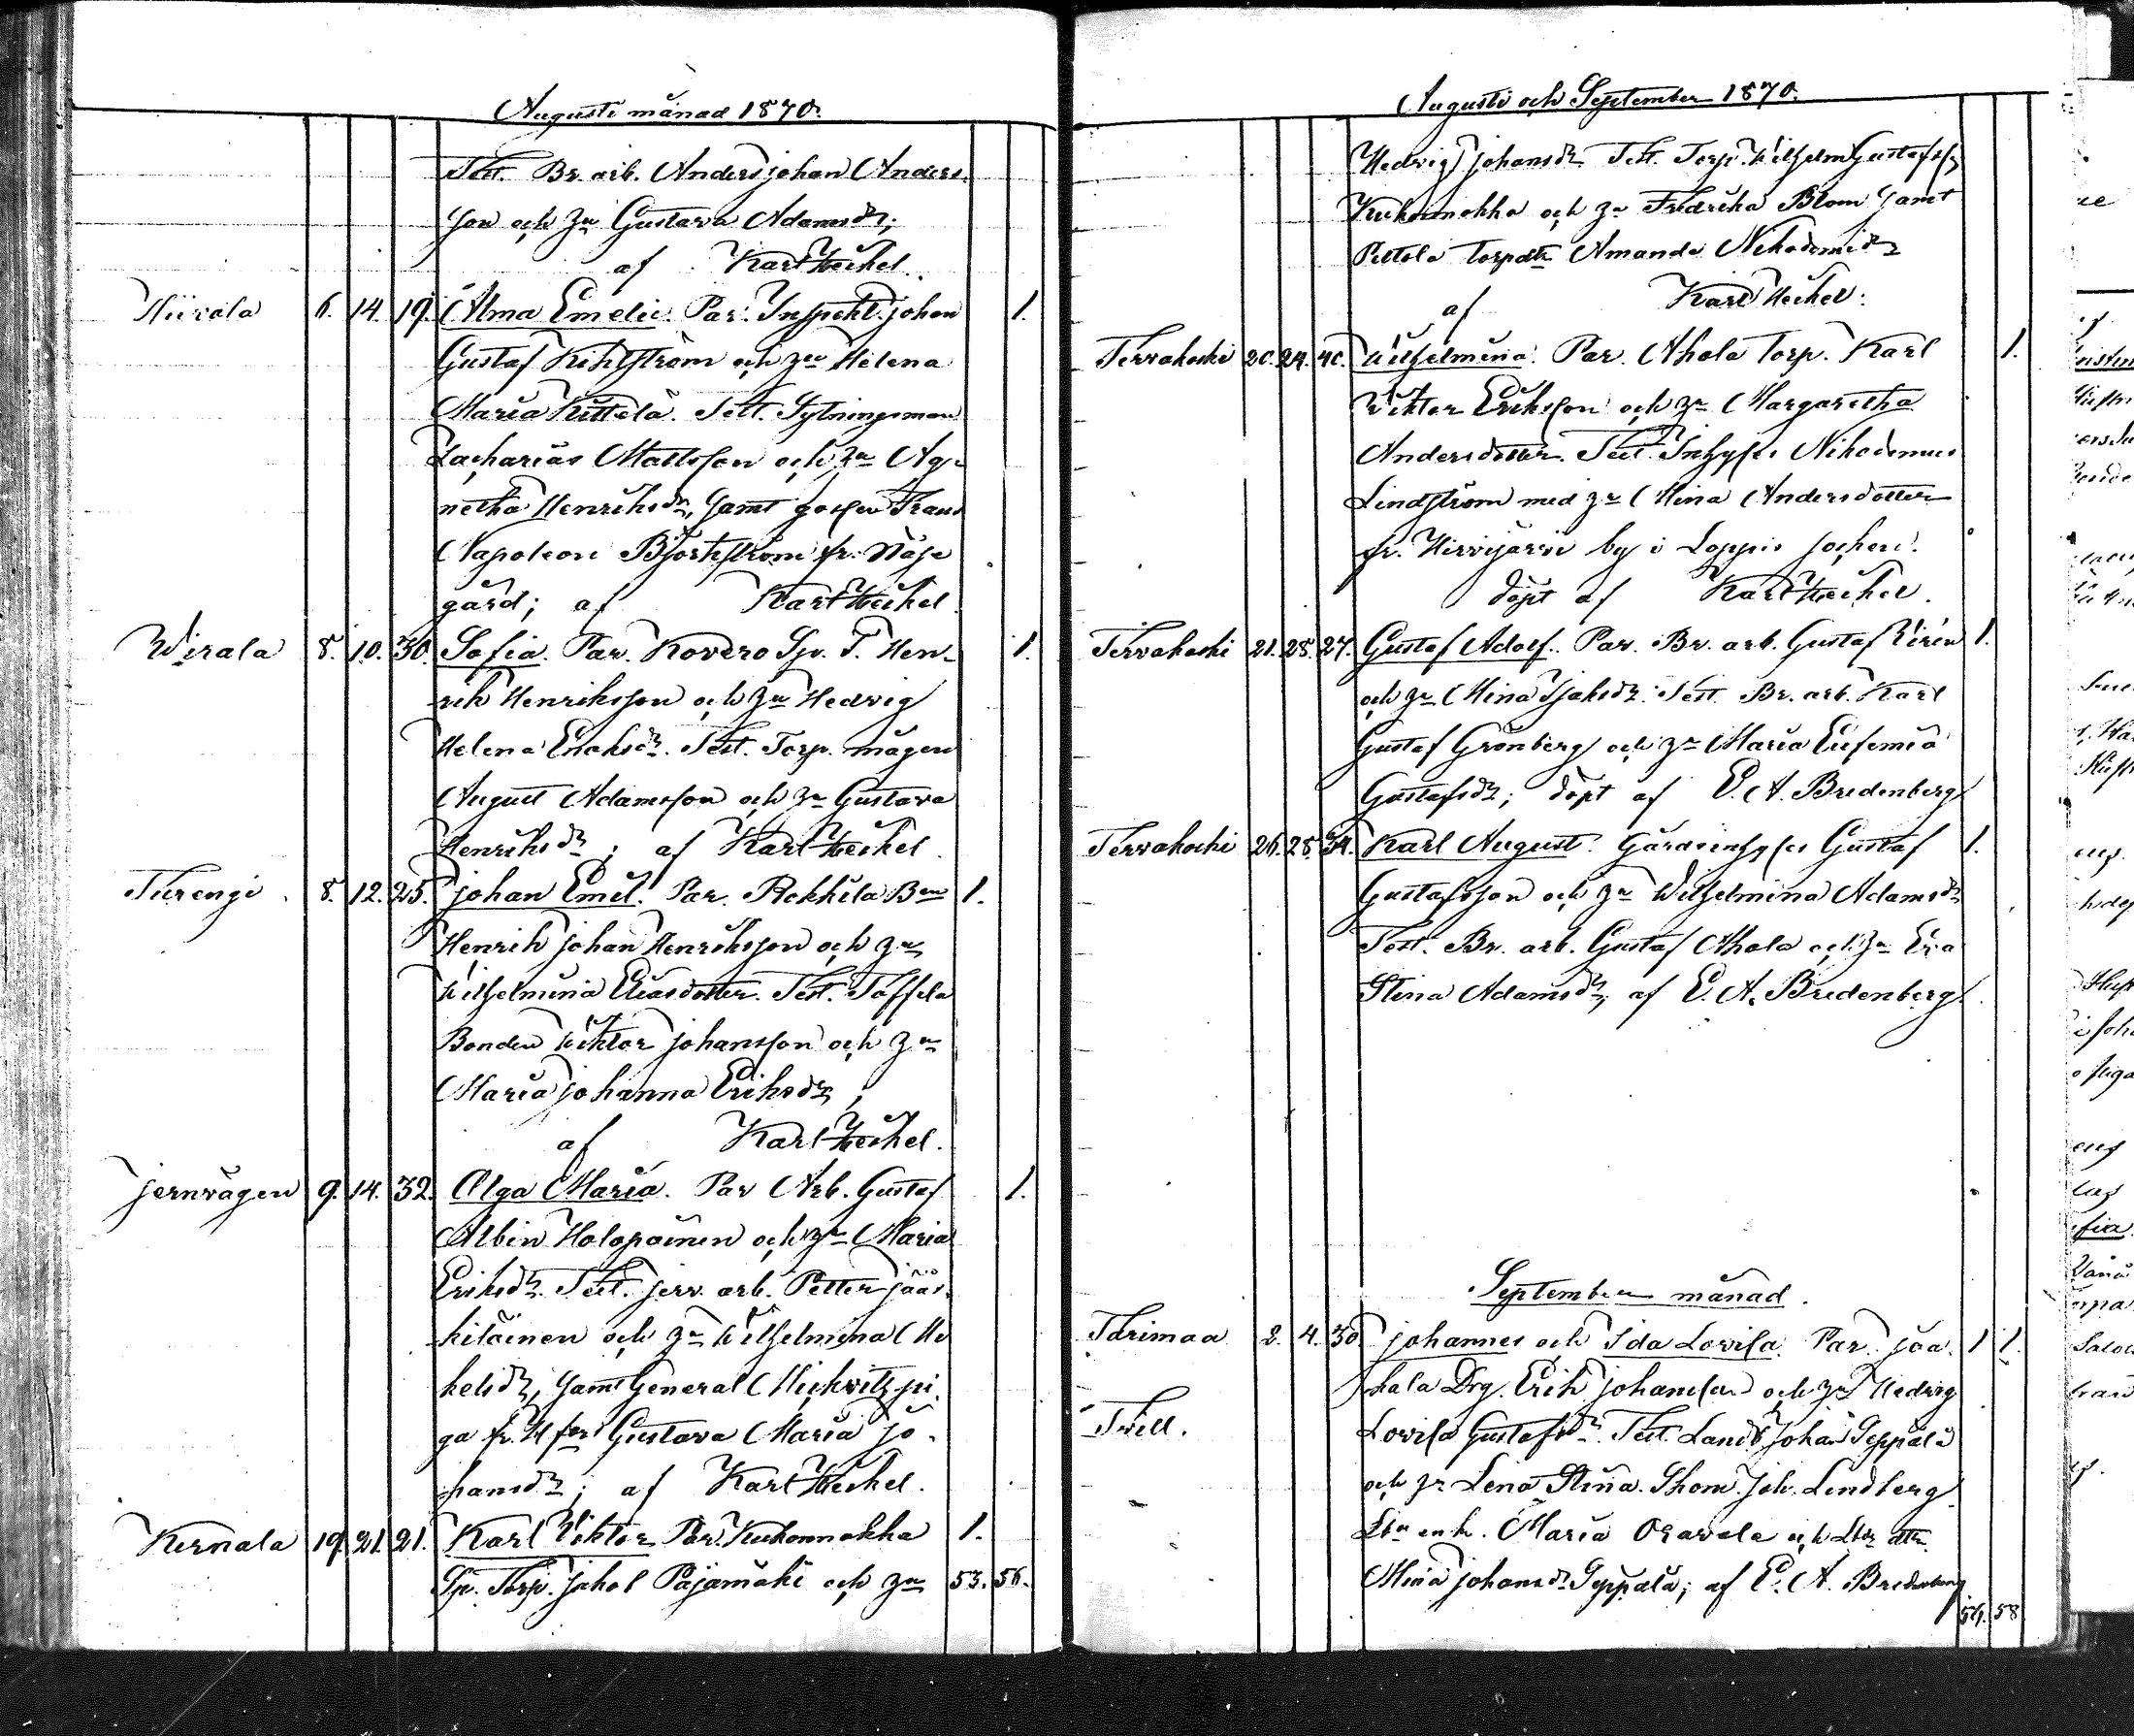 Augusti månad 1870.
Test. Br. arb. Anders Johan Anders-
son och hu Gustava Adamsdr;
af Karl Heikel.
Hiivola 6. 14. 19. Alma Emelie. Par. Inspekt. Johan 1.
Gustaf Kihlström och hu Helena
Maria Kittelä. Test. Sytningsman
Zacharias Mattsson och hu Ag-
netha Henriksdr, samt gossen Frans
Napoleon Björkström fr. Näse
gård; af Karl Heikel.
Wirala 8. 10. 30. Sofia. Par. Kovero Sp. T. Hen- 1.
rik Henriksson och hu Hedvig
Helena Enoksdr. Test. Torp. mågen
August Adamsson och hu Gustava
Henriksdr; af Karl Heikel.
Turengi. 8. 12. 25. Johan Emil. Par. Rekkilä Bn 1.
Henrik Johan Henriksson och hu
Wilhelmina Eliasdotter. Test. Toffila
Bonden Wiktor Johansson och hu
Maria Johanna Eriksdr;
af Karl Heikel.
Jernvägen 9. 14. 32. Olga Maria. Par Arb. Gustaf 1.
Albin Holopainen och hu Maria
Eriksdr. Test. jerv. arb. Petter Jääs-
keläinen och hu Wilhelmina Mi
kelsdr, samt General Mickwitz pi-
ga fr. Hfors Gustava Maria Jo-
hansdr; af Karl Heikel.
Kernala 19. 21. 21. Karl Viktor Par. Kukonnokka 1.
Sp. Torp. Jakob Pajamäki och hu 53. 56.
Augusti och September 1870.
Hedvig Johansdr Test. Torp. Wilhelm Gustafsson
Kukonnokka och hu Fredrika Blom samt
Pettola Torpdtr Amanda Nikodemidr
af Karl Heikel.
Tervakoski 20. 24. 40. Wilhelmina. Par. Ahola Torp. Karl 1.
Wiktor Eriksson och hu Margaretha
Andersdotter. Test. Inhyses Nikodemus
Lindström med hu Mina Andersdotter
fr. Hirvijärvi by i Loppis socken.
döpt af Karl Heikel.
Tervakoski 21. 28. 27. Gustaf Adolf. Par. Br. arb. Gustaf Virén 1.
och hu Mina Isaksdr. Test. Br. arb. Karl
Gustaf Grönberg och hu Maria Eufemia
Gustafsdr; döpt af E. A. Bredenberg.
Tervakoski 26. 28. 34. Karl August. Gårdsinhyses Gustaf 1.
Gustafsson och hu Wilhelmina Adamsdr
Test. Br. arb. Gustaf Ahola och hu Eva
Stina Adamsdr; af E. A. Bredenberg.
September månad.
Tarimaa 2. 4. 30 Johannes och Ida Lovisa. Par. Jaa- 1 1.
kala Drg. Erik Johansson och hu Hedvig
Tvill. Lovisa Gustafsdr. Test. Landb Johan Seppälä
och hu Lena Stina. Skom. Joh. Lindberg
Lbn enk. Maria Oravala och Lbn dtr
Mina Johansdr Seppälä; af E. A. Bredenberg
54. 58